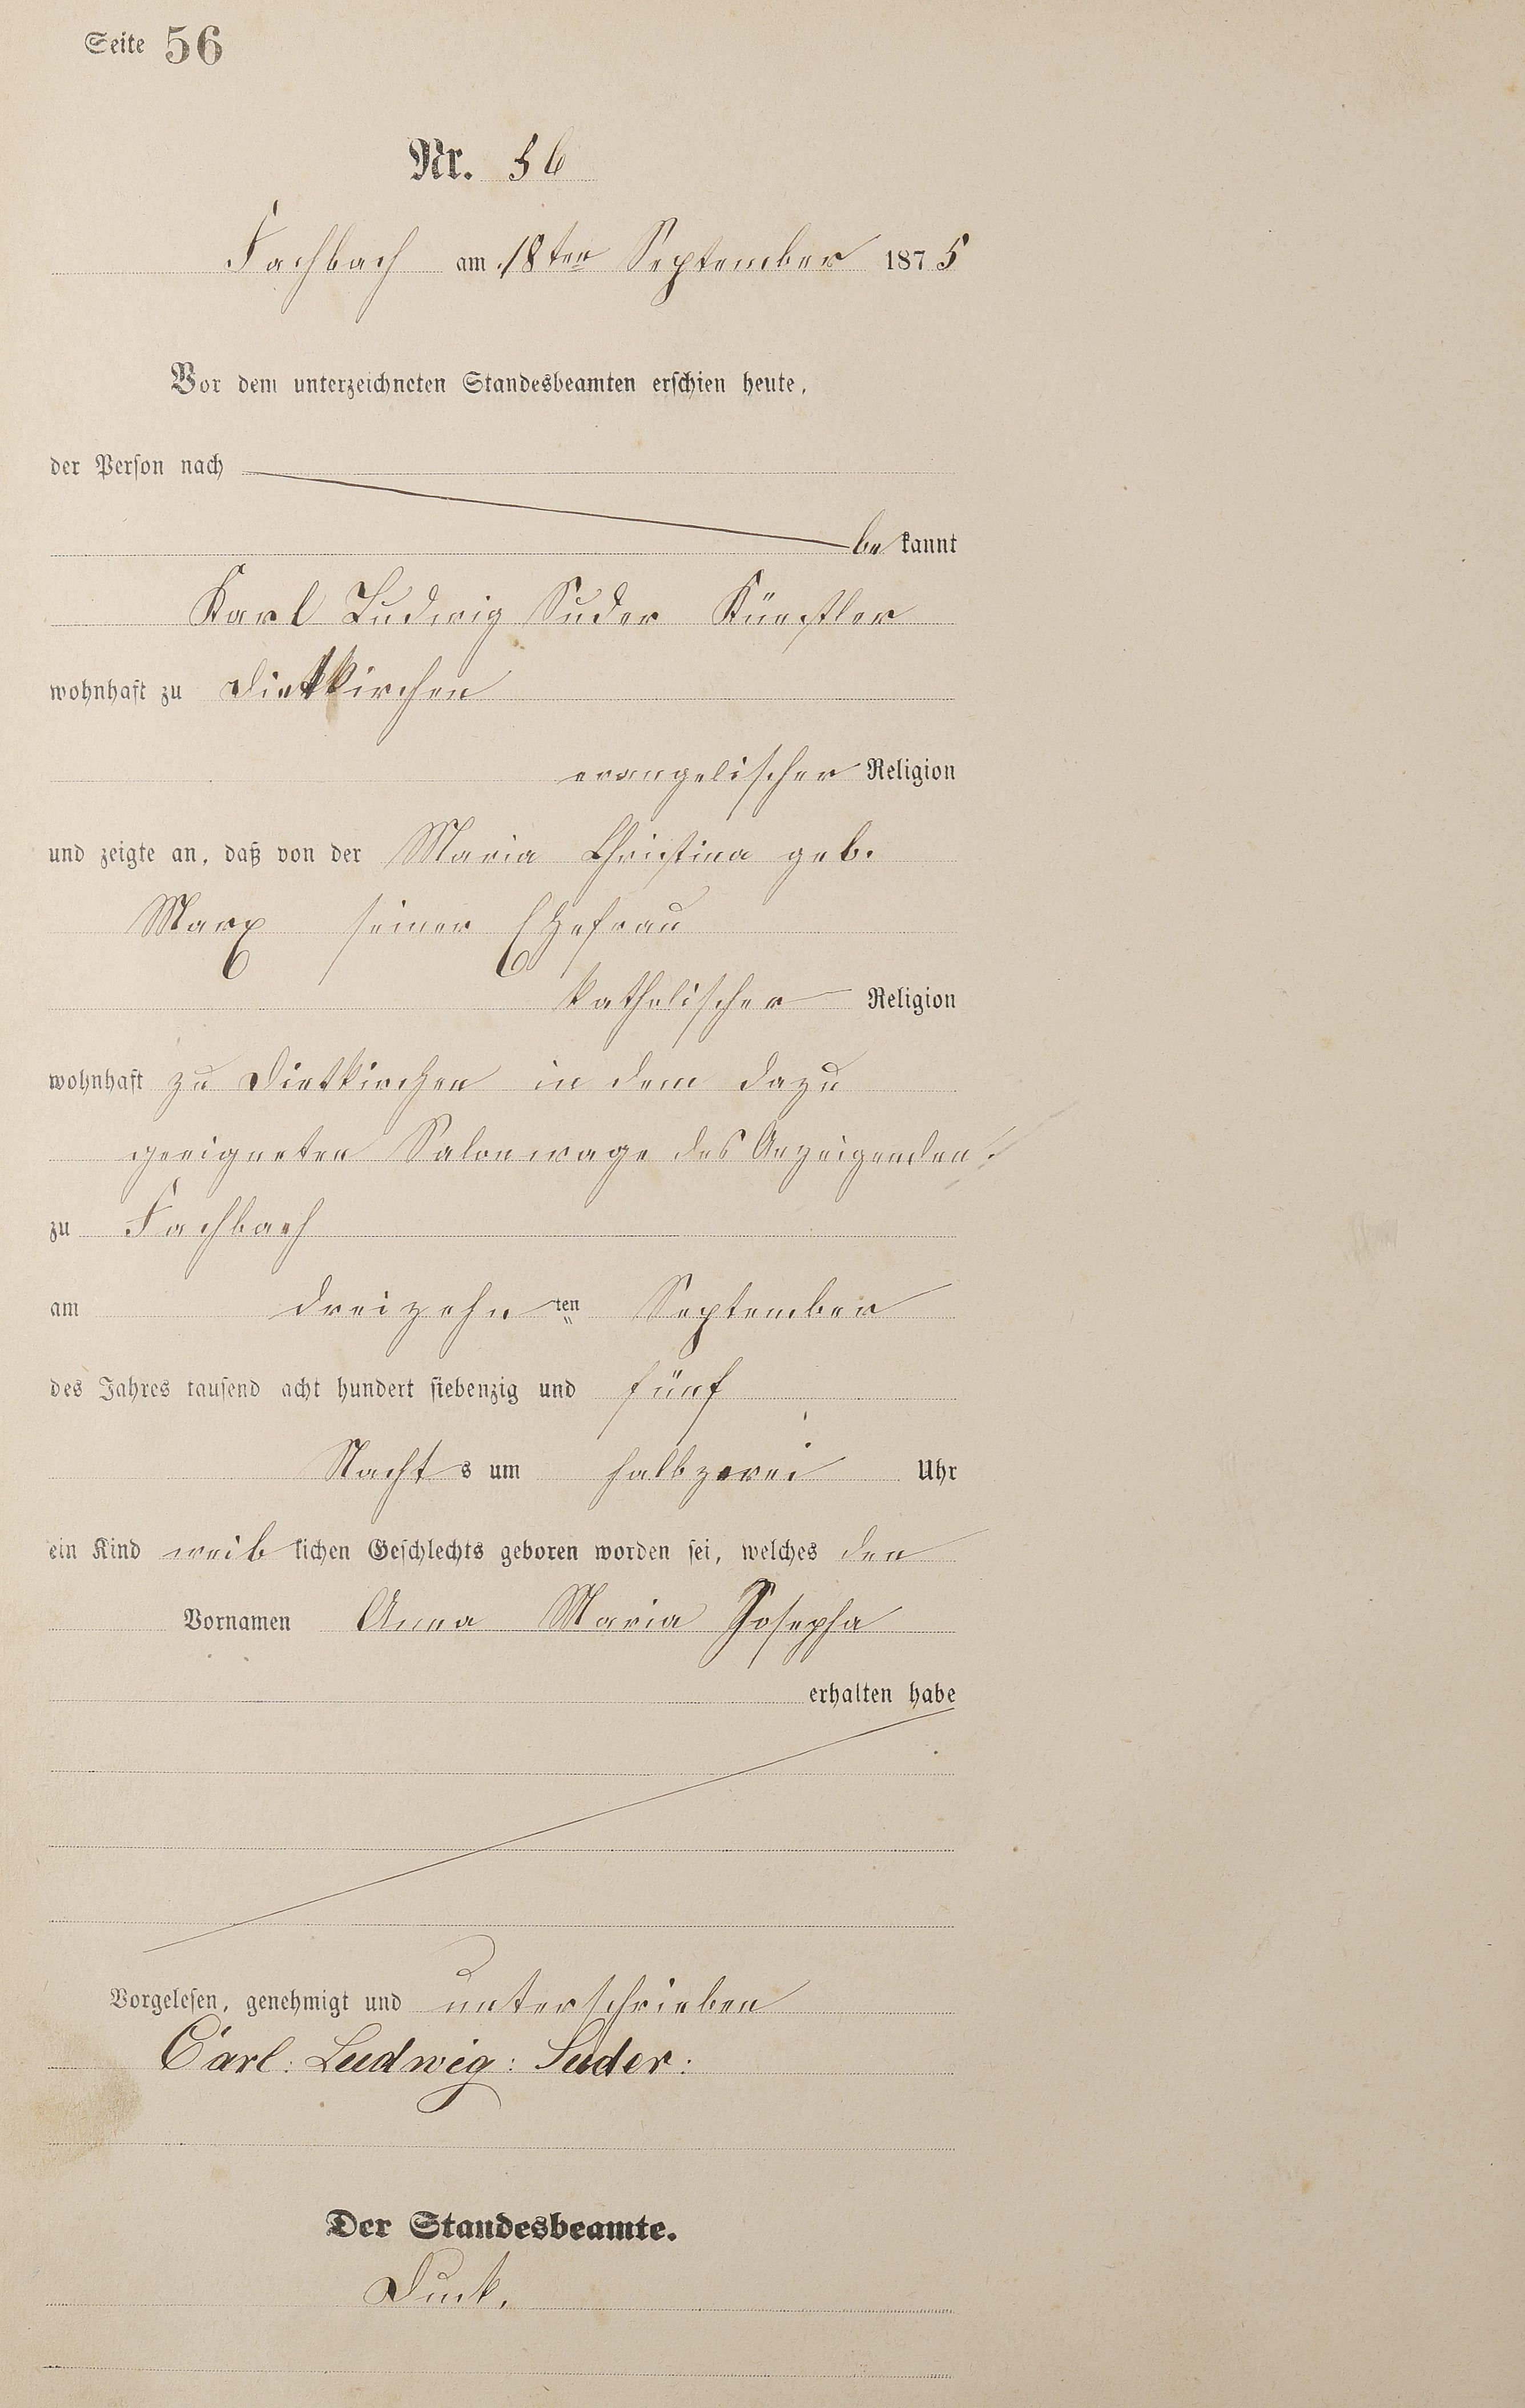 Seite 56
Nr. 56
Fachbach am 18ten September 1875
Vor dem unterzeichneten Standesbeamten erschien heute,
der Person nach
be kannt
Karl Ludwig Suder Künstler
wohnhaft zu Dietkirchen
evangelischer Religion
und zeigte an, daß von der Maria Christina geb.
Marx seiner Ehefrau
katholischer Religion
wohnhaft zu Dietkirchen in dem dazu
geeigneten Salonwage des Anzeigenden
zu Fachbach
am dreizehn ten September
des Jahres tausend acht hundert siebenzig und fünf
Nacht s um halbzwei Uhr
ein Kind weib lichen Geschlechts geboren worden sei, welches den
Vornamen Anna Maria Josepha
erhalten habe
Vorgelesen, genehmigt und unterschrieben
Carl: Ludwig: Suder:
Der Standesbeamte.